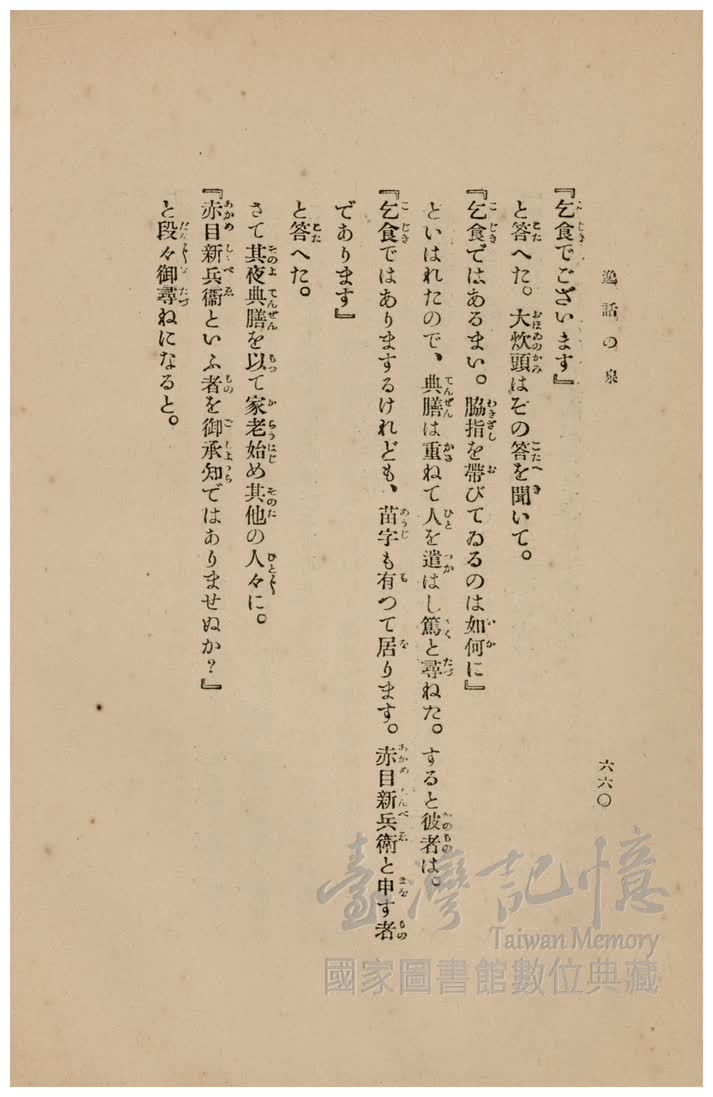 逸話の泉
六六〇
『乞食でございます』
と答へた。大炊頭はその答を聞いて。
『乞食ではあるまい。脇指を帶びてゐるのは如何に』
といはれたので、典膳は重ねて人を遣はし篤と尋ねた。すると彼者は。
『乞食ではありまするけれども、苗字も有つて居ります。赤目新兵衞と申す者
であります』
と答へた。
さて其夜典膳を以て家老始め其他の人々に。
『赤目新兵衞といふ者を御承知ではありませぬか？』
と段々御尋ねになると。
臺灣記憶
Taiwan Memory
國家圖書館數位典藏